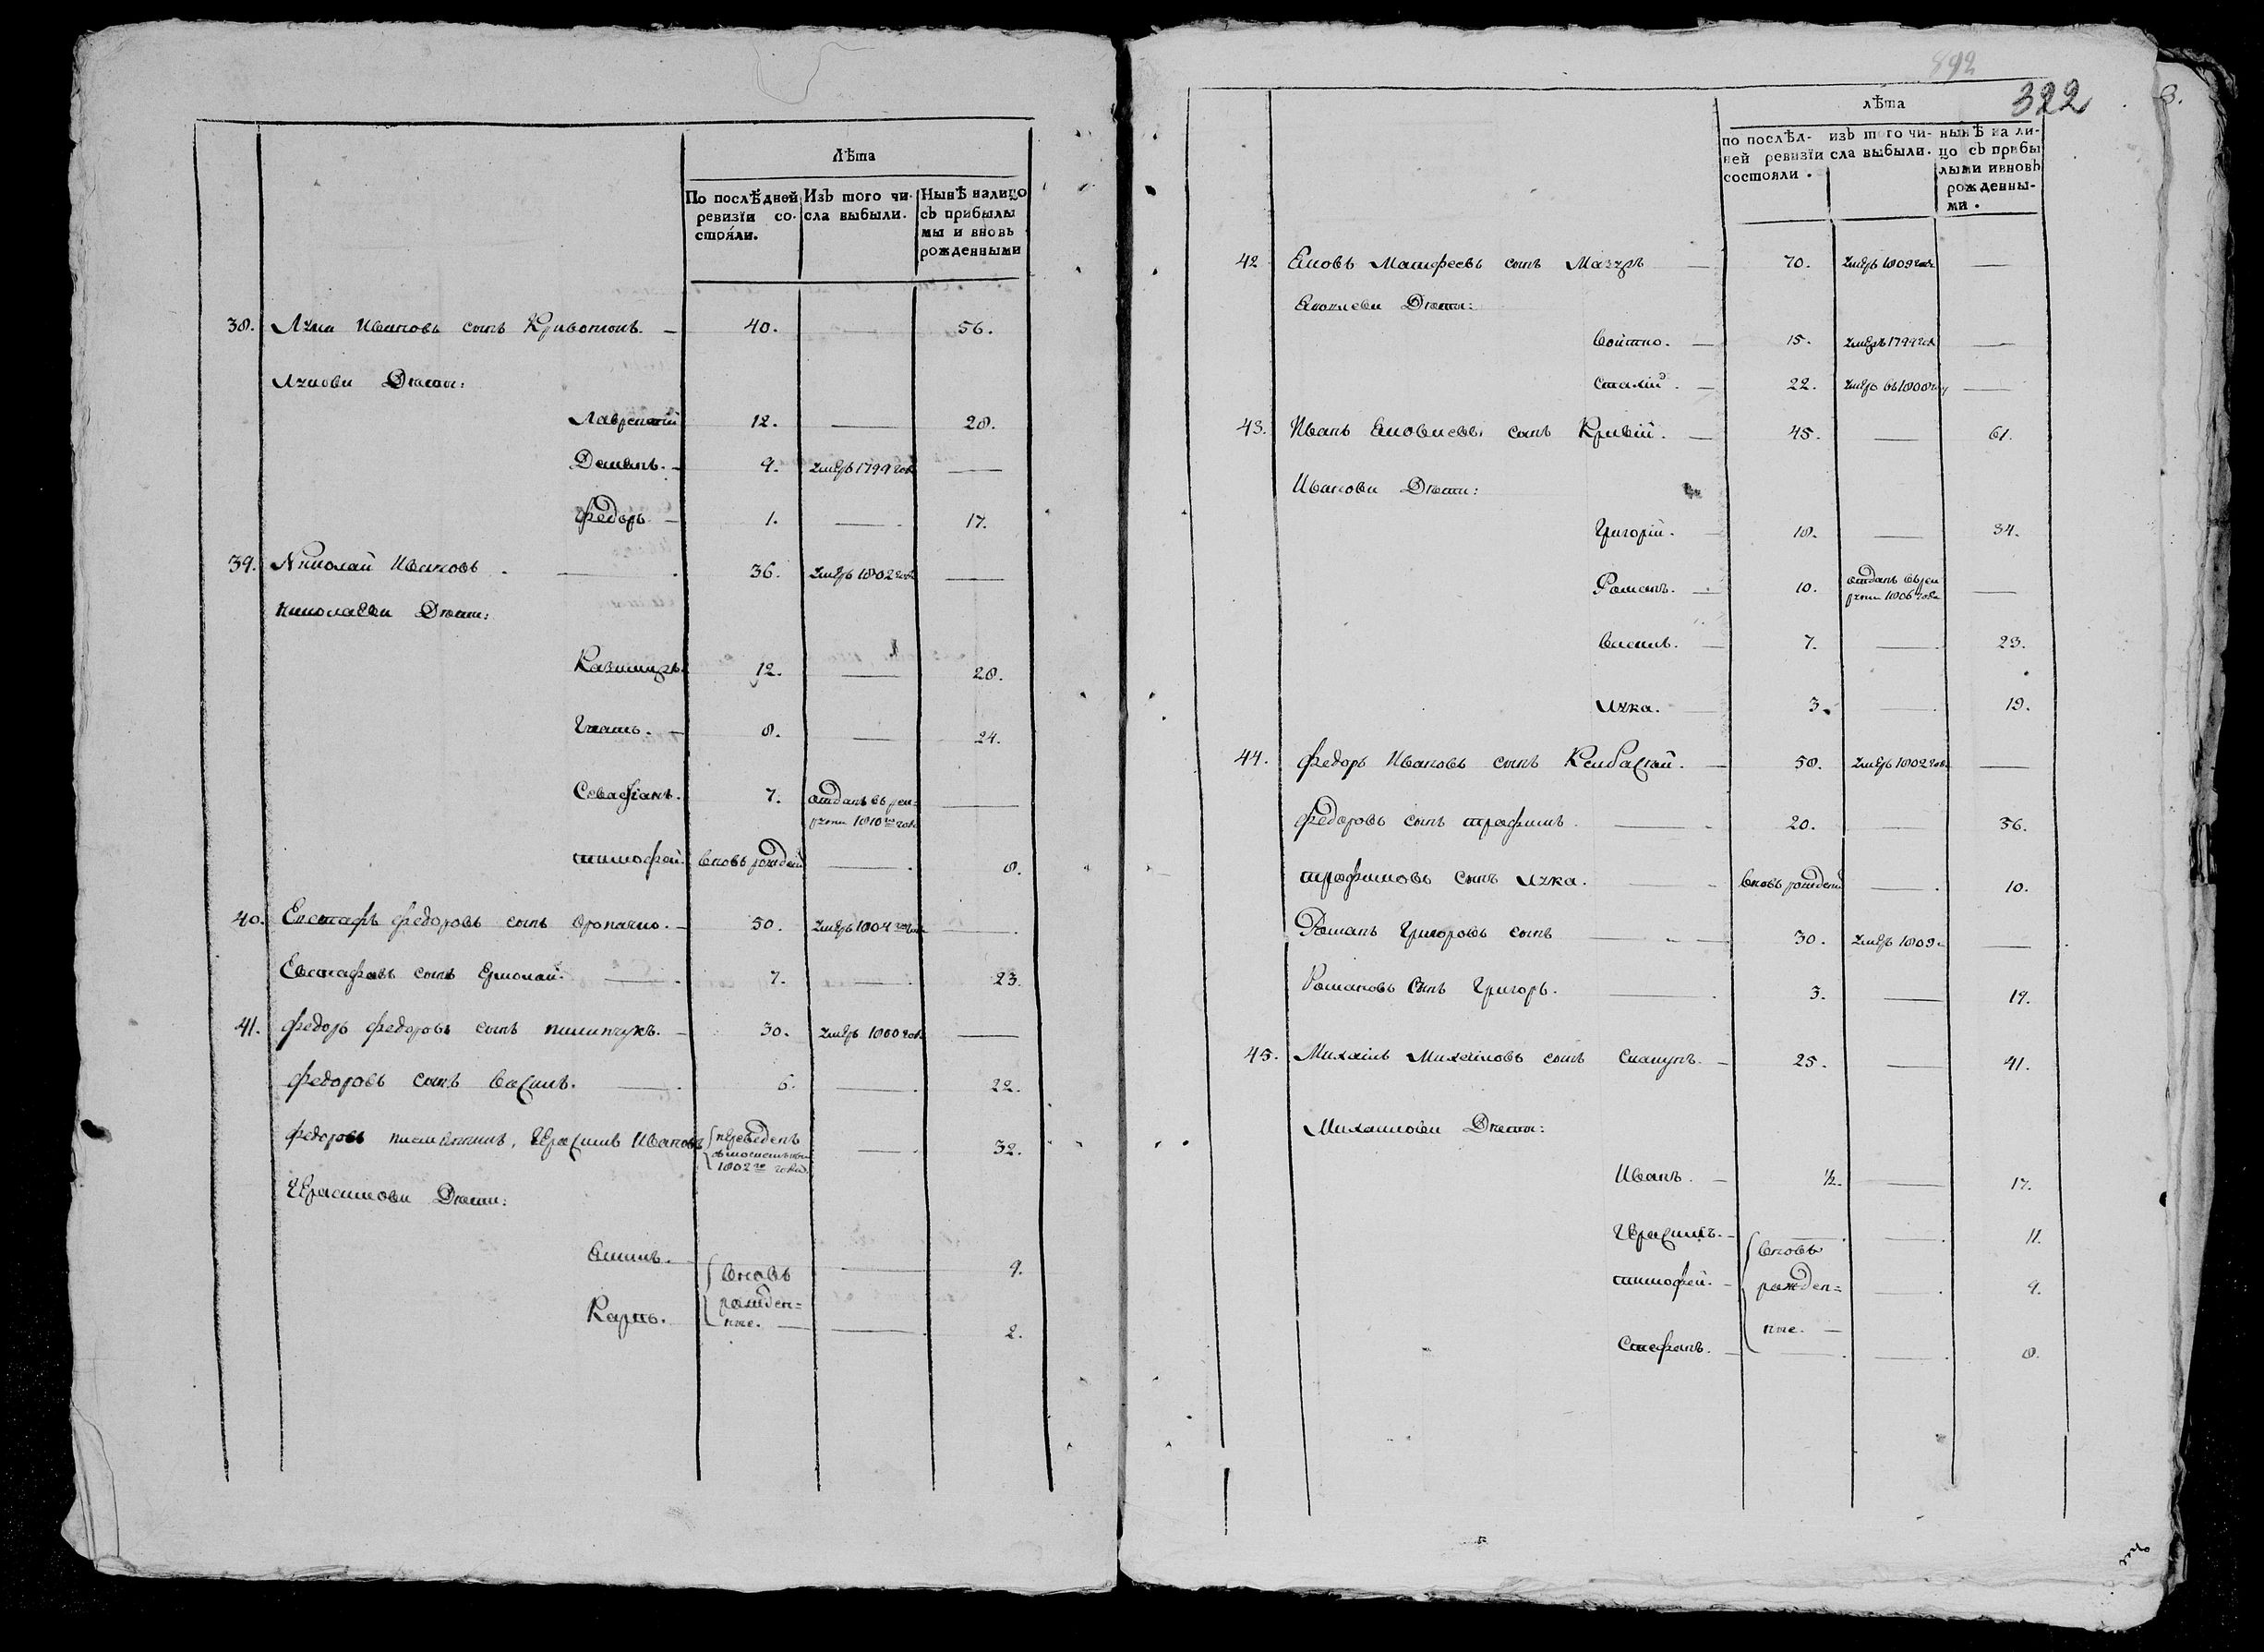 Лѣта
По послѣдней ревизїи со-стояли.
Изъ того чи-сла выбыли.
Нынѣ налицо съ прибылы мы и вновь рожденными
38. Лука Ивановъ сынъ 40. — 56.
Лукови Дѣти:
Лаврентїй 12. — 28.
Демянъ. — 9. умеръ 1799 года —
Федоръ — 1. — 17.
39. Николай Ивановъ. — 36. умеръ 1802 года —
Николаеви Дѣти:
Казимиръ 12. — 28.
Игнатъ. — 8. — 24.
7. отданъ въ рек-руты 1810го года —
тимофей. вновь рожден — 8.
40. федоровъ сынъ 50. умеръ 1804 года —
сынъ Ермолай. — 7. — 23.
41. федоръ федоровъ сынъ пилипчукъ. — 30. умеръ 1800 года —
федоровъ сынъ василь. — 6. — 22.
федоровъ Герасимъ Ивановъ переведенъ 1802го года — 32.
Герасимови Дѣти:
9.
Карпъ. вновь рожден=ные. — 2.
892
322
лѣта
по послѣд-ней ревизїи состояли.
изъ того чи-сла выбыли.
нынѣ на ли-цо съ прибы лыми ивновь рожденны-ми.
42 Матфеевъ сынъ Мазуръ — 70. умеръ 1809 года —
Дѣти:
Войтко. — 15. умеръ 1799 года —
22. умеръ въ 1808 году —
43. Иванъ сынъ Кривїй. — 45. — 61.
Иванови Дѣти:
Григорїй. — 18. — 34.
Романъ. — 10. отданъ въ рек руты 1806 года —
Василь. — 7. — 23.
Лука. — 3. — 19.
44. федоръ Ивановъ сынъ — 50. умеръ 1802 года —
федоровъ сынъ трофимъ. — 20. — 36.
трофимовъ сынъ Лука. — вновь рожден — 10.
Романъ Григоровъ сынъ — 30. умеръ 1809 —
Романовъ сынъ Григоръ. — 3. — 19.
45. Михаилъ Михайловъ сынъ — 25. — 41.
Михайлови Дѣти:
Иванъ. — ½. — 17.
Герасимъ. — вновь — 11.
тимофей. — рожден= — 9.
Стефанъ. — ные. — 8.